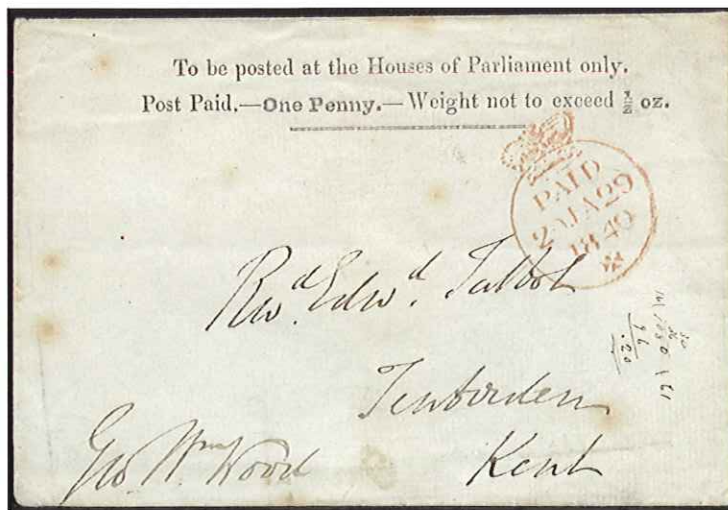 To be posted at the Houses of Parliament only.
Post Paid.—One Penny.—Weight not to exceed ½ oz.
PAID
29 JA 29
1840
Revd. Edwd. Talbot
Tenterden
Kent
Geo Wm Wood